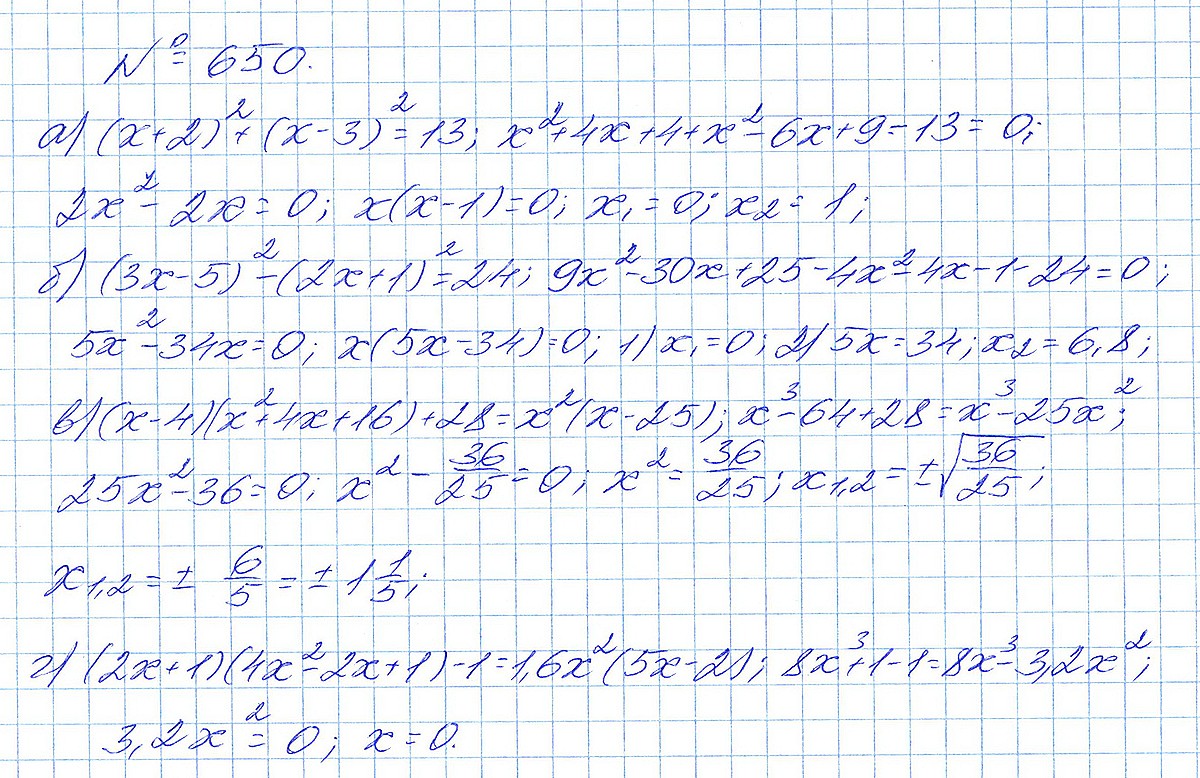 № 650.
а) (x+2)² + (x-3)² = 13; x²+4x+4+x²-6x+9-13=0;
2x²-2x=0; x(x-1)=0; x₁=0; x₂=1;
б) (3x-5)²-(2x+1)²=24; 9x²-30x+25-4x²-4x-1-24=0;
5x²-34x=0; x(5x-34)=0; 1) x₁=0; 2) 5x=34; x₂=6,8;
в) (x-4)(x²+4x+16)+28=x²(x-25); x³-64+28=x³-25x²;
25x²-36=0; x²-36/25=0; x²=36/25; x₁,₂=±√(36/25);
x₁,₂=± 6/5=±1 1/5;
г) (2x+1)(4x²-2x+1)-1=1,6x²(5x-2); 8x³+1-1=8x³-3,2x²;
3,2x²=0; x=0.